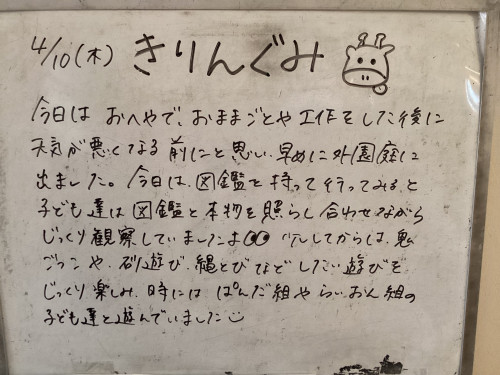 4/10(木) きりんぐみ
今日は おへやで、おままごとや 工作をした後に
天気が悪くなる 前にと思い、早めに外園庭に
出ました。今日は、図鑑を 持って行ってみると
子ども達は 図鑑と本物を照らし合わせながら
じっくり観察していましたよ 少ししてからは、鬼
ごっこや、砂遊び、縄とびなど したい遊びを
じっくり楽しみ、時には ぱんだ組や らいおん組の
子ども達と遊んでいました